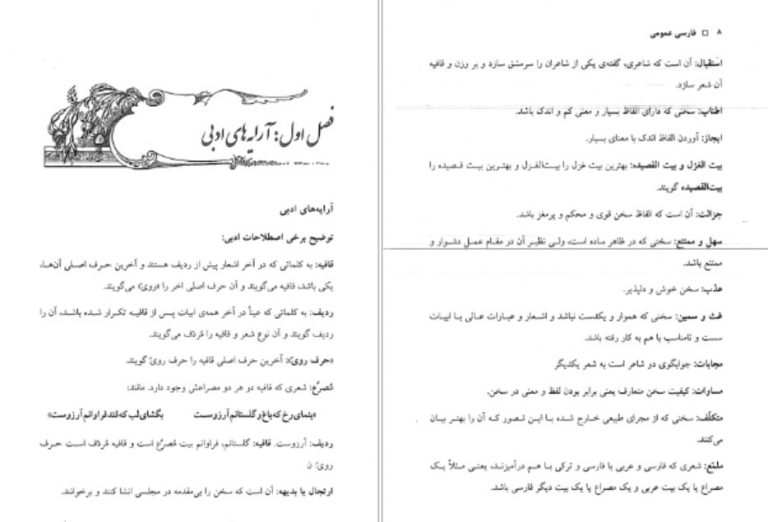 فصل اول: آرایه‌های ادبی
آرایه‌های ادبی
توضیح برخی اصطلاحات ادبی:
قافیه: به کلماتی که در آخر اشعار پیش از ردیف هستند و آخرین حرف اصلی آن‌ها،
یکی باشد، قافیه می‌گویند و آن حرف اصلی اخر را «روی» می‌گویند.
ردیف: به کلماتی که عیناً در آخر همه‌ی ابیات پس از قافیه تکرار شده باشد، آن را
ردیف گویند و آن نوع شعر و قافیه را مُردَف می‌گویند.
«حرف روی»: آخرین حرف اصلی قافیه را حرف رویّ گویند.
مُصرَّع: شعری که قافیه دو هر دو مصراعش وجود دارد. مانند:
«بنمای رخ که باغ و گلستانم آرزوست بگشای لب که قند فراوانم آرزوست»
ردیف: آرزوست. قافیه: گلستانم، فراوانم بیت مُصرّع است و قافیه مُردَف است حرف
رویّ: ن
ارتجال یا بدیهه: آن است که سخن را بی‌مقدمه در مجلسی انشا کنند و برخوانند.
۸ □ فارسی عمومی
استقبال: آن است که شاعری، گفته‌ی یکی از شاعران را سرمشق سازد و بر وزن و قافیه
آن شعر سازد.
اطناب: سخنی که دارای الفاظ بسیار و معنی کم و اندک باشد.
ایجاز: آوردن الفاظ اندک با معنای بسیار.
بیت الغزل و بیت القصیده: بهترین بیت غزل را بیت‌الغزل و بهترین بیت قصیده را
بیت‌القصیده گویند.
جزالت: آن است که الفاظ سخن قوی و محکم و پرمغز باشد.
سهل و ممتنع: سخنی که در ظاهر ساده است، ولی نظیر آن در مقام عمل دشوار و
ممتنع باشد.
عذب: سخن خوش و دلپذیر.
غث و سمین: سخنی که هموار و یکدست نباشد و اشعار و عبارات عالی با ابیات
سست و نامناسب با هم به کار رفته باشد.
مجابات: جوابگوی دو شاعر است به شعر یکدیگر
مساوات: کیفیت سخن متعارف یعنی برابر بودن لفظ و معنی در سخن.
متکلّف: سخنی که از مجرای طبیعی خارج شده با این تصور که آن را بهتر بیان
می‌کنند.
ملمّع: شعری که فارسی و عربی یا فارسی و ترکی با هم درآمیزند، یعنی مثلاً یک
مصراع یا یک بیت عربی و یک مصراع یا یک بیت دیگر فارسی باشد.